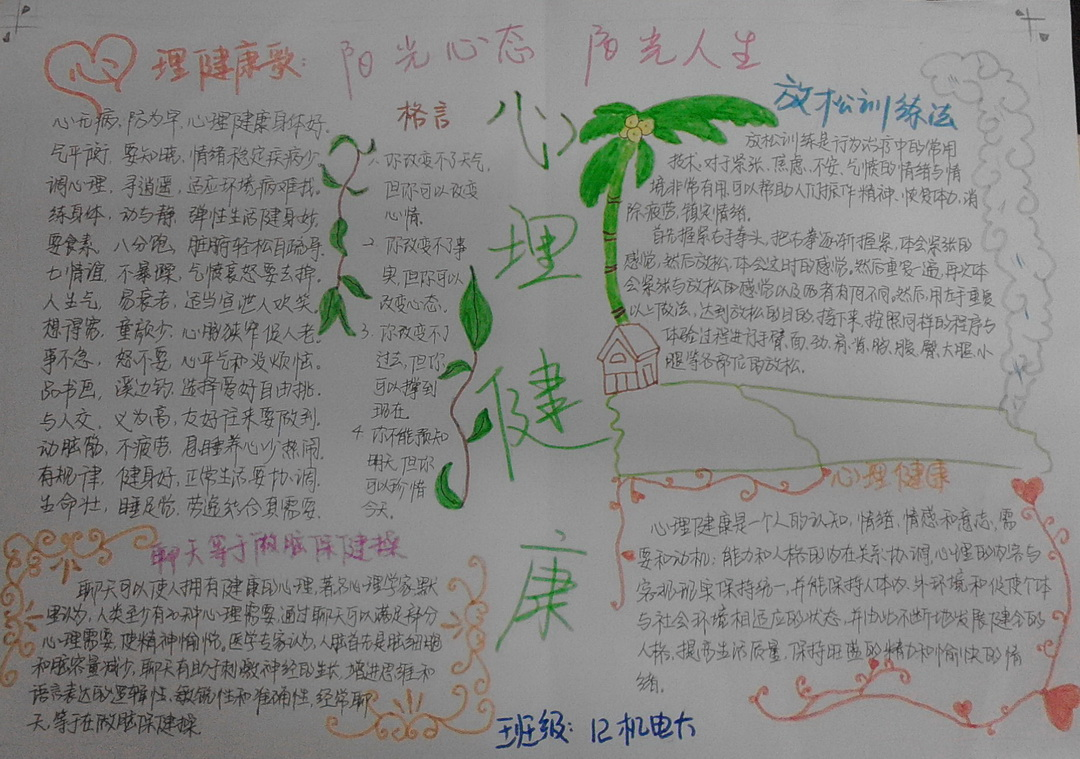 阳光心态 阳光人生
心理健康歌:
心无病,防为早,心理健康身体好,
气平衡,要知晓,情绪稳定疾病少,
调心理,寻逍遥,适应环境病难找,
练身体,动与静,弹性生活健身妙,
要食素,八分饱,脏腑轻松自疏导,
七情宜,不暴躁,气愤哀怒要去掉,
人生气,易衰老,适当宣泄人欢笑,
想得宽,童颜少,心胸狭窄促人老,
事不急,怒不要,心平气和没烦恼,
品书画,溪边钓,选择爱好自由挑,
与人交,义为高,友好往来要做到,
动脑筋,不疲劳,息睡养心少热闹,
有规律,健身好,正常生活要协调,
生命壮,睡足饱,劳逸结合真需要
格言
1、你改变不了天气,
但你可以改变
心情。
2、你改变不了事
实,但你可以
改变心态。
3、你改变不了
过去,但你
可以
现在。
4、你不能预知
明天,但你
可以珍惜
今天。
心
理
健
康
放松训练法
放松训练是行为治疗中的常用
技术,对于紧张、焦虑、不安、气愤的情绪与情
境非常有用,可以帮助人们振作精神、恢复体力、消
除疲劳、镇定情绪。
首先握紧右手拳头,把右拳逐渐握紧,体会紧张的
感觉,然后放松,体会这时的感觉。然后重复一遍,再次体
会紧张与放松的感觉以及两者有何不同。然后,用左手重复
以上做法,达到放松的目的。接下来,按照同样的程序与
体验过程进行手臂、面、颈、肩、背、胸、腹、臀、大腿、小
腿等各部位的放松。
心理健康
心理健康是一个人的认知,情绪,情感和意志,需
要和动机;能力和人格的内在关系协调,心理的内容与
客观现实保持统一,并能保持人体内、外环境和促使个体
与社会环境相适应的状态,并由此不断地发展健全的
人格,提高生活质量,保持旺盛的精力和愉快的情
绪。
聊天等于做脑保健操
聊天可以使人拥有健康的心理,著名心理学家默
里认为,人类至少有20种心理需要,通过聊天可以满足部分
心理需要,使精神愉悦。医学专家认为,人脑首先是脑细胞
和脑容量减少,聊天有助于刺激神经的生长,增进思维和
语言表达的逻辑性、敏锐性和准确性,经常聊
天,等于在做脑保健操
班级:12机电大